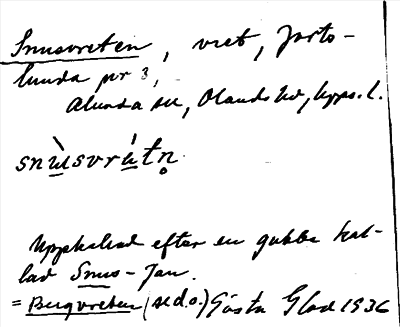 Snusvreten, vret, Jorto-
lunda nr 3,
Alunda sn, Olands hd, Upps. l.
snùsvrátn̥
Uppkallad efter en gubbe kal-
lad Snus-Jan.
= Bergvreten (se d.o.) Gösta Glad 1936